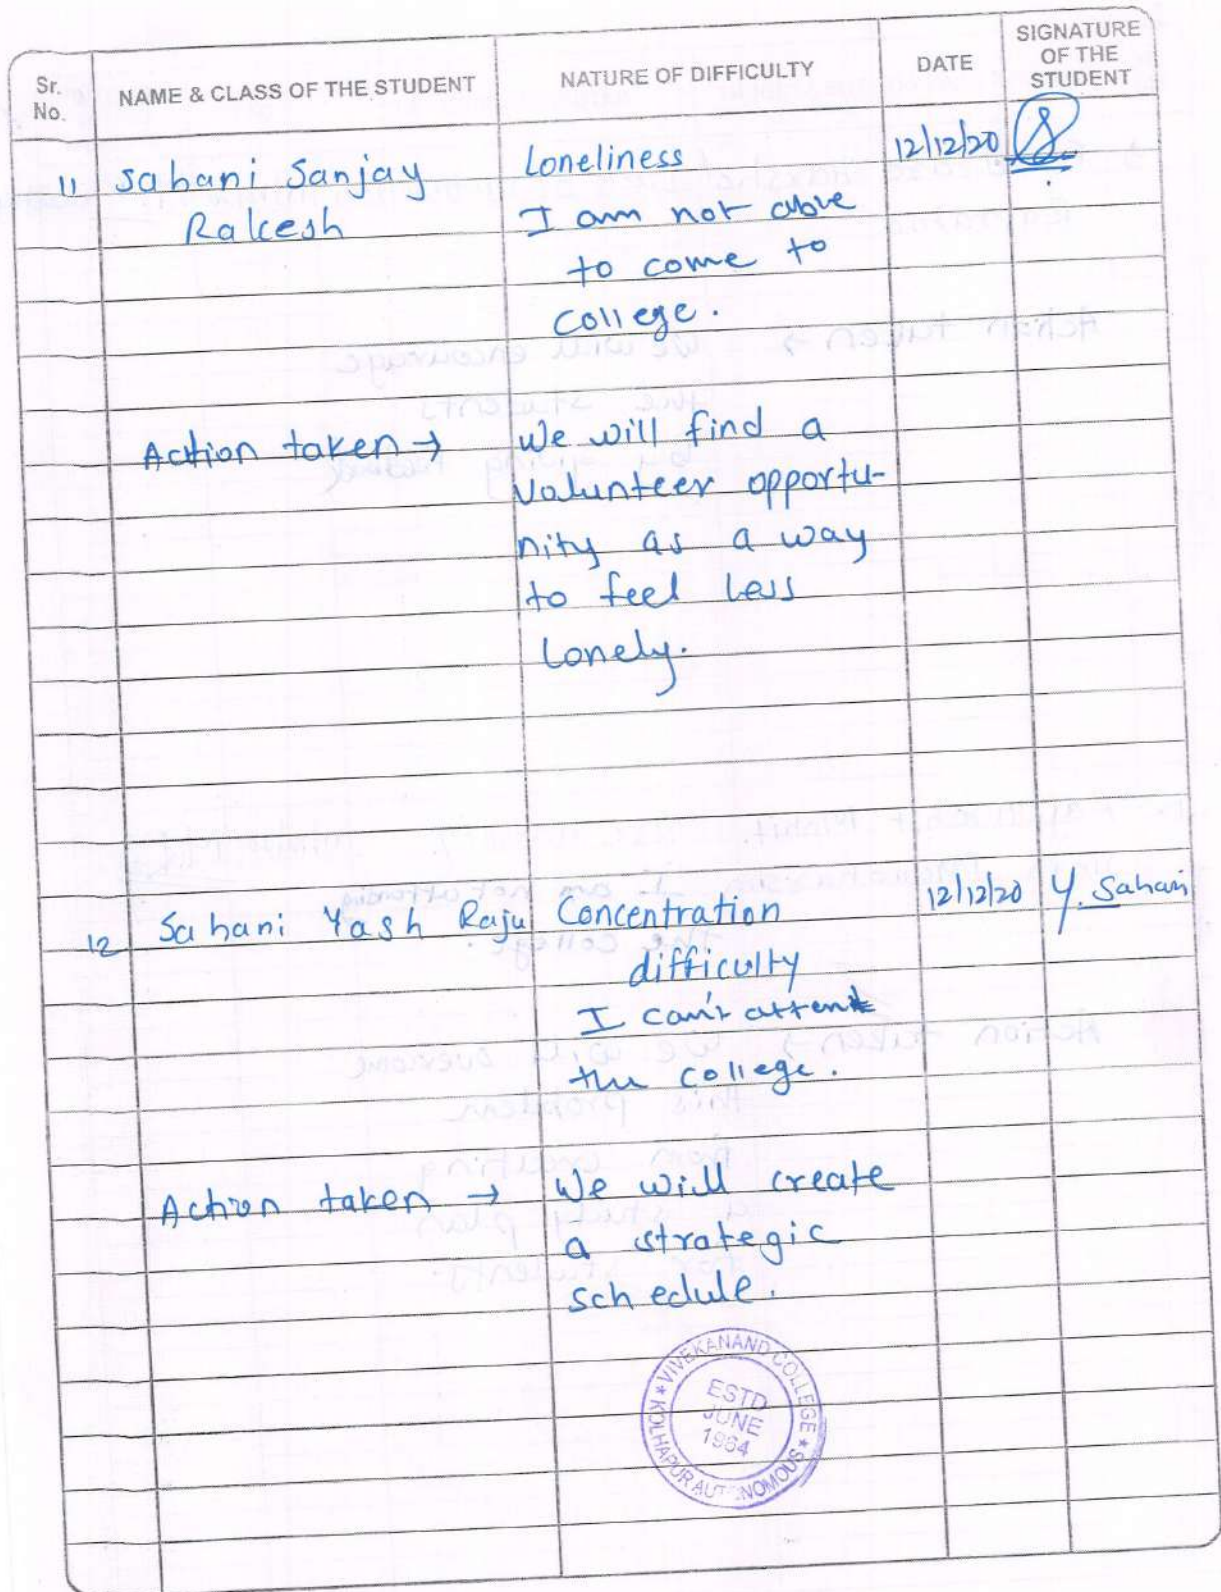 Sr. No.
NAME & CLASS OF THE STUDENT
NATURE OF DIFFICULTY
DATE
SIGNATURE OF THE STUDENT
11 Sahani Sanjay Loneliness 12/12/20
Rakesh I am not above
to come to
college.
Action taken → We will find a
volunteer opportu-
nity as a way
to feel less
lonely.
12 Sahani Yash Raju Concentration 12/12/20 Y. Sahani
difficulty
I can't attent
the college.
Action taken → We will create
a strategic
schedule.
VIVEKANAND COLLEGE * KOLHAPUR AUTONOMOUS *
ESTD
JUNE
1964